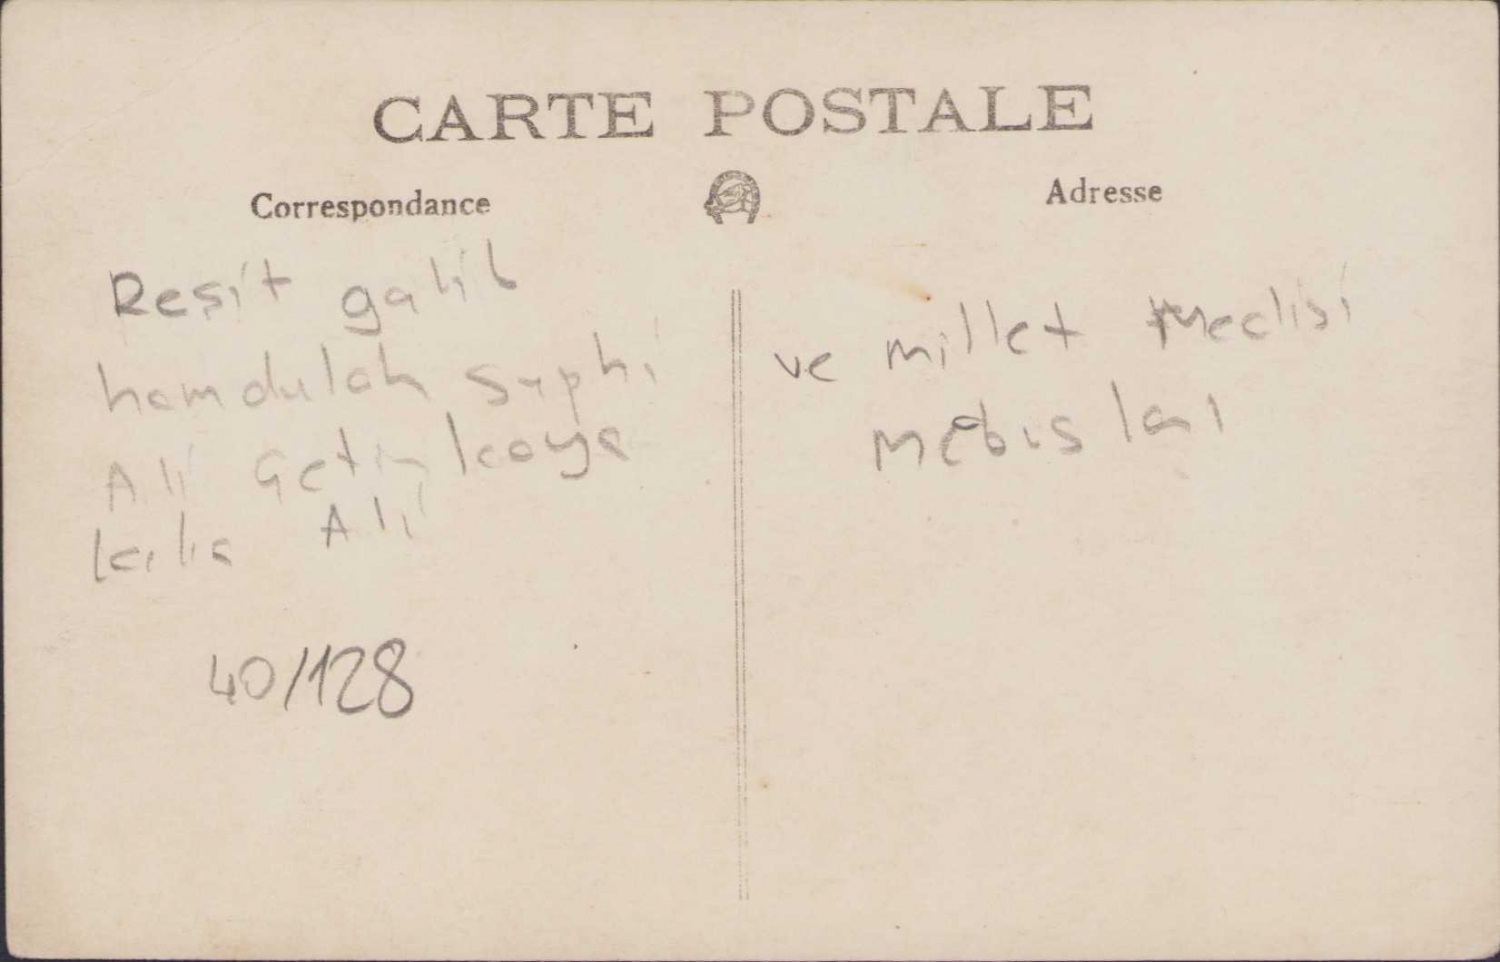 CARTE POSTALE
Correspondance
Adresse
Resit galib
hamdulah suphi
Ali Çetinkaya
kılıç Ali
40/128
ve millet Meclisi
Mebusları